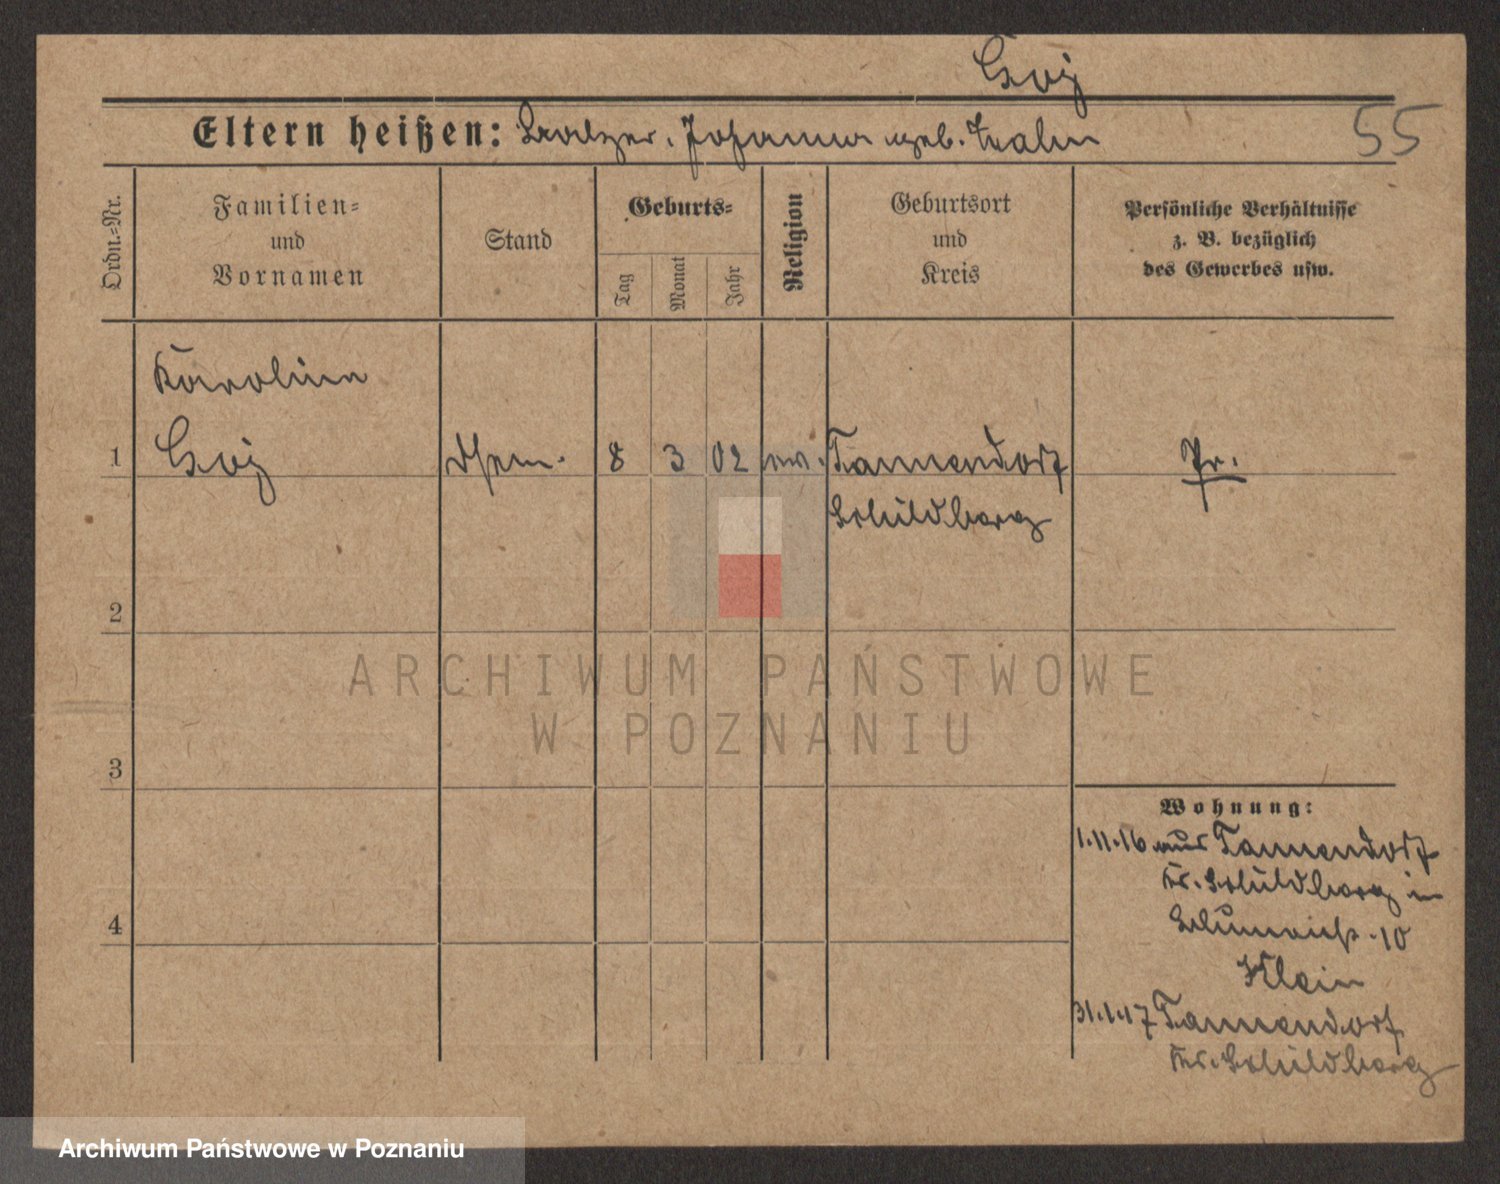 Goj
55
Eltern heißen: Balzer, Johanna geb.
Ordn.-Nr.
Familien-
und
Vornamen
Stand
Geburts-
Tag
Monat
Jahr
Religion
Geburtsort
und
Kreis
Persönliche Verhältnisse
z. B. bezüglich
des Gewerbes usw.
Karolina
1 Goj 8 3 02 Tannendorf Pr.
Schildberg
2
ARCHIWUM PAŃSTWOWE
W POZNANIU
3
Wohnung:
1.11.16 aus Tannendorf
Kr. Schildberg in
10
4
Klein
31.1.17 Tannendorf
Kr. Schildberg
Archiwum Państwowe w Poznaniu